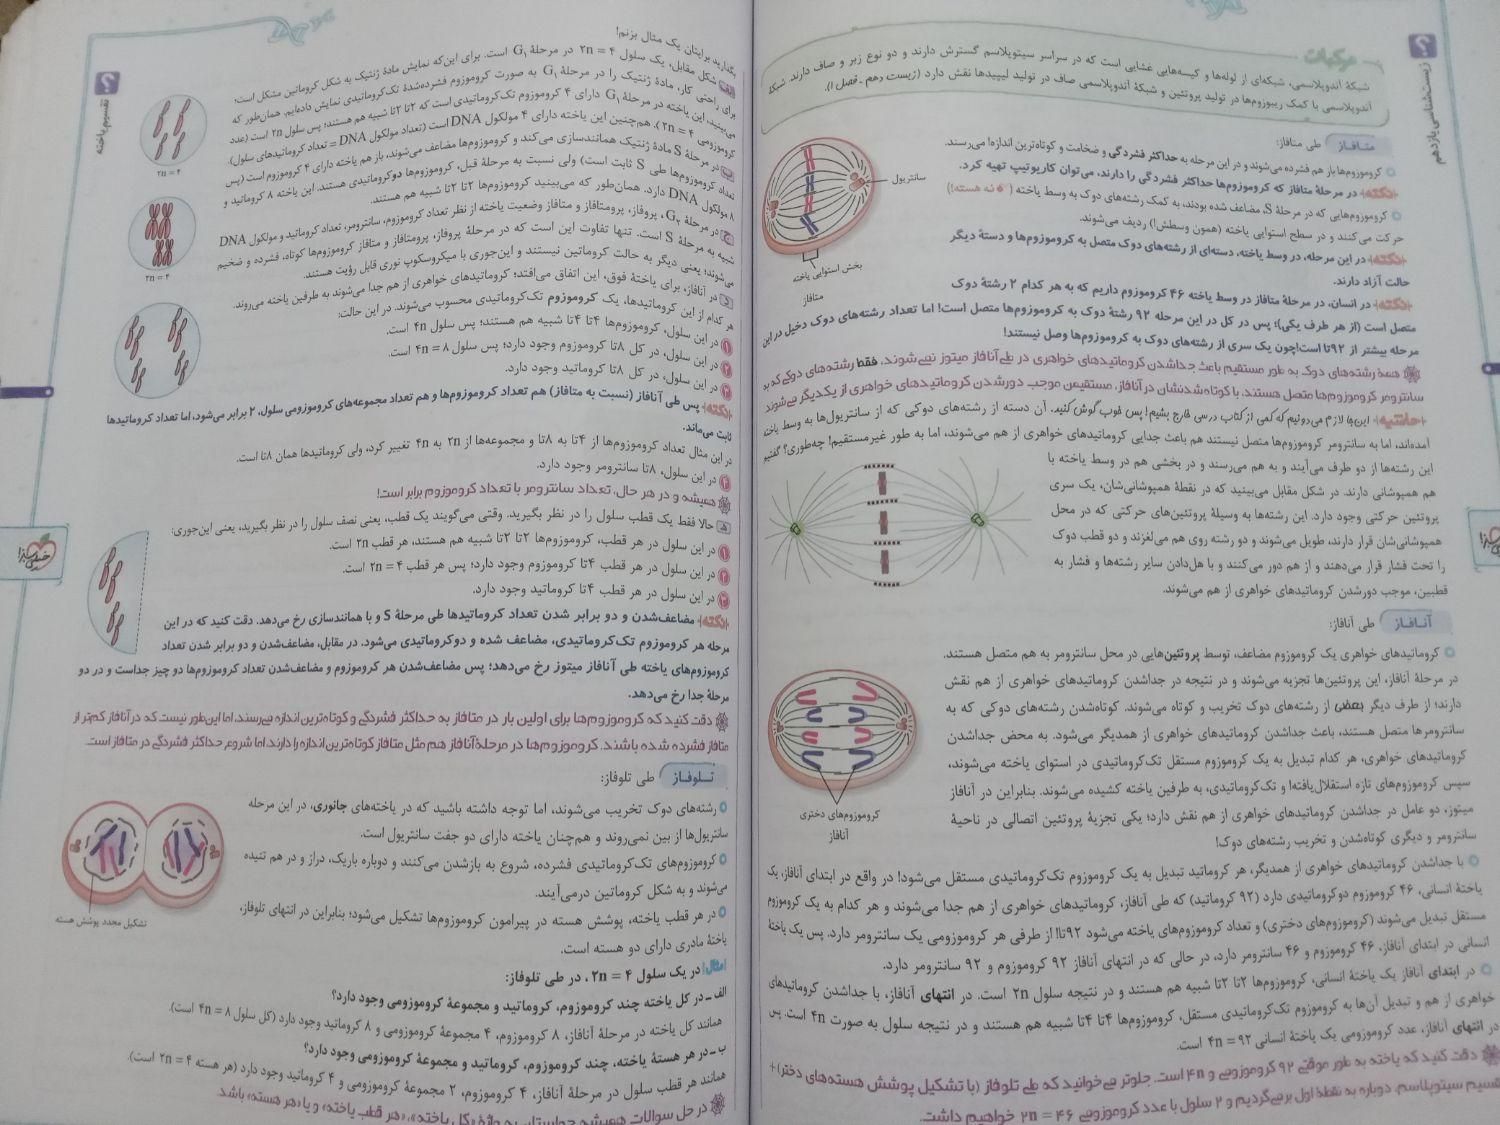 زیست‌شناسی یازدهم
مرکبات
شبکهٔ آندوپلاسمی، شبکه‌ای از لوله‌ها و کیسه‌هایی غشایی است که در سراسر سیتوپلاسم گسترش دارند و دو نوع زبر و صاف دارند. شبکهٔ
آندوپلاسمی با کمک ریبوزوم‌ها در تولید پروتئین و شبکهٔ آندوپلاسمی صاف در تولید لیپیدها نقش دارد (زیست دهم ـ فصل ۱).
متافاز طی متافاز:
کروموزوم‌ها باز هم فشرده می‌شوند و در این مرحله به حداکثر فشردگی و ضخامت و کوتاه‌ترین اندازه! می‌رسند.
نکته در مرحلهٔ متافاز که کروموزوم‌ها حداکثر فشردگی را دارند، می‌توان کاریوتیپ تهیه کرد.
کروموزوم‌هایی که در مرحلهٔ S، مضاعف شده بودند، به کمک رشته‌های دوک به وسط یاخته (نه هسته!)
حرکت می‌کنند و در سطح استوایی یاخته (همون وسطش!) ردیف می‌شوند.
نکته در این مرحله، در وسط یاخته، دسته‌ای از رشته‌های دوک متصل به کروموزوم‌ها و دستهٔ دیگر
حالت آزاد دارند.
نکته در انسان، در مرحلهٔ متافاز در وسط یاخته ۴۶ کروموزوم داریم که به هر کدام ۲ رشتهٔ دوک
متصل است (از هر طرف یکی)؛ پس در کل در این مرحله ۹۲ رشتهٔ دوک به کروموزوم‌ها متصل است! اما تعداد رشته‌های دوک دخیل در این
مرحله بیشتر از ۹۲تا است! چون یک سری از رشته‌های دوک به کروموزوم‌ها وصل نیستند!
سانتریول
بخش استوایی یاخته
متافاز
همهٔ رشته‌های دوک به طور مستقیم باعث جداشدن کروماتیدهای خواهری در طی آنافاز میتوز نمی‌شوند. فقط رشته‌های دوکی که به
سانترومر کروموزوم‌ها متصل هستند، با کوتاه‌شدنشان در آنافاز، مستقیمن موجب دورشدن کروماتیدهای خواهری از یکدیگر می‌شوند
حاشیه این‌جا لازم می‌دونیم که کمی از کتاب درسی خارج بشیم! پس خوب گوش کنید. آن دسته از رشته‌های دوکی که از سانتریول‌ها به وسط یاخته
آمده‌اند، اما به سانترومر کروموزوم‌ها متصل نیستند هم باعث جدایی کروماتیدهای خواهری از هم می‌شوند، اما به طور غیرمستقیم! چه‌طوری؟ گفتیم
این رشته‌ها از دو طرف می‌آیند و به هم می‌رسند و در بخشی هم در وسط یاخته با
هم همپوشانی دارند. در شکل مقابل می‌بینید که در نقطهٔ همپوشانی‌شان، یک سری
پروتئین حرکتی وجود دارد. این رشته‌ها به وسیلهٔ پروتئین‌های حرکتی که در محل
همپوشانی‌شان قرار دارند، طویل می‌شوند و دو رشته روی هم می‌لغزند و دو قطب دوک
را تحت فشار قرار می‌دهند و از هم دور می‌کنند و با هل‌دادن سایر رشته‌ها و فشار به
قطبین، موجب دورشدن کروماتیدهای خواهری از هم می‌شوند.
آنافاز طی آنافاز:
کروماتیدهای خواهری یک کروموزوم مضاعف، توسط پروتئین‌هایی در محل سانترومر به هم متصل هستند.
در مرحلهٔ آنافاز، این پروتئین‌ها تجزیه می‌شوند و در نتیجه در جداکردن کروماتیدهای خواهری از هم نقش
دارند؛ از طرف دیگر بعضی از رشته‌های دوک تخریب و کوتاه می‌شوند. کوتاه‌شدن رشته‌های دوکی که به
سانترومرها متصل هستند، باعث جداکردن کروماتیدهای خواهری از همدیگر می‌شود. به محض جداشدن
کروماتیدهای خواهری، هر کدام تبدیل به یک کروموزوم مستقل تک‌کروماتیدی در استوای یاخته می‌شوند،
سپس کروموزوم‌های تازه استقلال‌یافته! و تک‌کروماتیدی، به طرفین یاخته کشیده می‌شوند. بنابراین در آنافاز
میتوز، دو عامل در جداکردن کروماتیدهای خواهری از هم نقش دارد؛ یکی تجزیهٔ پروتئین اتصالی در ناحیهٔ
سانترومر و دیگری کوتاه‌شدن و تخریب رشته‌های دوک!
کروموزوم‌های دختری
آنافاز
با جداشدن کروماتیدهای خواهری از همدیگر، هر کروماتید تبدیل به یک کروموزوم تک‌کروماتیدی مستقل می‌شود! در واقع در ابتدای آنافاز، یک
یاختهٔ انسانی، ۴۶ کروموزوم دوکروماتیدی دارد (۹۲ کروماتید) که طی آنافاز، کروماتیدهای خواهری از هم جدا می‌شوند و هر کدام به یک کروموزوم
مستقل تبدیل می‌شوند (کروموزوم‌های دختری) و تعداد کروموزوم‌های یاخته می‌شود ۹۲تا! از طرفی هر کروموزومی یک سانترومر دارد، پس یک یاختهٔ
انسانی در ابتدای آنافاز، ۴۶ کروموزوم و ۴۶ سانترومر دارد، در حالی که در انتهای آنافاز ۹۲ کروموزوم و ۹۲ سانترومر دارد.
در ابتدای آنافاز یک یاختهٔ انسانی، کروموزوم‌ها ۲تا ۲تا شبیه هم هستند و در نتیجه سلول ۲n است. در انتهای آنافاز، با جداشدن کروماتیدهای
خواهری از هم و تبدیل آن‌ها به کروموزوم تک‌کروماتیدی مستقل، کروموزوم‌ها ۴تا ۴تا شبیه هم هستند و در نتیجه سلول به صورت ۴n است. پس
در انتهای آنافاز، عدد کروموزومی یک یاختهٔ انسانی ۴n = ۹۲ است.
دقت کنید که یاخته به طور موقتی ۹۲ کروموزومی و ۴n است. جلوتر می‌خوانید که طی تلوفاز (با تشکیل پوشش هسته‌های دختر) +
تقسیم سیتوپلاسم، دوباره به نقطهٔ اول برمی‌گردیم و ۲ سلول با عدد کروموزومی ۲n = ۴۶ خواهیم داشت.
تقسیم یاخته
بگذارید برایتان یک مثال بزنم!
الف شکل مقابل، یک سلول ۲n = ۴ در مرحلهٔ G₁ است. برای این‌که نمایش مادهٔ ژنتیک به شکل کروماتین مشکل است؛
برای راحتی کار، مادهٔ ژنتیک را در مرحلهٔ G₁ به صورت کروموزوم فشرده‌شدهٔ تک‌کروماتیدی نمایش داده‌ایم. همان‌طور که
می‌بینید، این یاخته در مرحلهٔ G₁ دارای ۴ کروموزوم تک‌کروماتیدی است که ۲تا ۲تا شبیه هم هستند؛ پس سلول ۲n است (عدد
کروموزومی ۲n = ۴). هم‌چنین این یاخته دارای ۴ مولکول DNA است (تعداد مولکول DNA = تعداد کروماتیدهای سلول).
ب در مرحلهٔ S مادهٔ ژنتیک همانندسازی می‌کند و کروموزوم‌ها مضاعف می‌شوند، باز هم یاخته دارای ۴ کروموزوم است (پس
تعداد کروموزوم‌ها طی S ثابت است) ولی نسبت به مرحلهٔ قبل، کروموزوم‌ها دوکروماتیدی هستند. این یاخته ۸ کروماتید و
۸ مولکول DNA دارد. همان‌طور که می‌بینید کروموزوم‌ها ۲تا ۲تا شبیه هم هستند.
ج در مرحلهٔ G₂، پروفاز، پرومتافاز و متافاز وضعیت یاخته از نظر تعداد کروموزوم، سانترومر، تعداد کروماتید و مولکول DNA
شبیه به مرحلهٔ S است. تنها تفاوت این است که در مرحلهٔ پروفاز، پرومتافاز و متافاز کروموزوم‌ها کوتاه، فشرده و ضخیم
می‌شوند؛ یعنی دیگر به حالت کروماتین نیستند و این‌جوری با میکروسکوپ نوری قابل رؤیت هستند.
د در آنافاز، برای یاختهٔ فوق، این اتفاق می‌افتد؛ کروماتیدهای خواهری از هم جدا می‌شوند به طرفین یاخته می‌روند.
هر کدام از این کروماتیدها، یک کروموزوم تک‌کروماتیدی محسوب می‌شوند. در این حالت:
۱ در این سلول، کروموزوم‌ها ۴تا ۴تا شبیه هم هستند؛ پس سلول ۴n است.
۲ در این سلول، در کل ۸تا کروموزوم وجود دارد؛ پس سلول ۴n = ۸ است.
۳ در این سلول، در کل ۸تا کروماتید وجود دارد.
۲n = ۴
۲n = ۴
نکته پس طی آنافاز (نسبت به متافاز) هم تعداد کروموزوم‌ها و هم تعداد مجموعه‌های کروموزومی سلول، ۲ برابر می‌شود، اما تعداد کروماتیدها
ثابت می‌ماند.
در این مثال تعداد کروموزوم‌ها از ۴تا به ۸تا و مجموعه‌ها از ۲n به ۴n تغییر کرد، ولی کروماتیدها همان ۸تا است.
۴ در این سلول، ۸تا سانترومر وجود دارد.
همیشه و در هر حال، تعداد سانترومر با تعداد کروموزوم برابر است!
هـ حالا فقط یک قطب سلول را در نظر بگیرید. وقتی می‌گویند یک قطب، یعنی نصف سلول را در نظر بگیرید، یعنی این‌جوری:
۱ در این سلول در هر قطب، کروموزوم‌ها ۲تا ۲تا شبیه هم هستند، هر قطب ۲n است.
۲ در این سلول در هر قطب ۴تا کروموزوم وجود دارد؛ پس هر قطب ۲n = ۴ است.
۳ در این سلول، در هر قطب ۴تا کروماتید وجود دارد.
نکته مضاعف‌شدن و دو برابر شدن تعداد کروماتیدها طی مرحلهٔ S و با همانندسازی رخ می‌دهد. دقت کنید که در این
مرحله هر کروموزوم تک‌کروماتیدی، مضاعف شده و دوکروماتیدی می‌شود. در مقابل، مضاعف‌شدن و دو برابر شدن تعداد
کروموزوم‌های یاخته طی آنافاز میتوز رخ می‌دهد؛ پس مضاعف‌شدن هر کروموزوم و مضاعف‌شدن تعداد کروموزوم‌ها دو چیز جداست و در دو
مرحلهٔ جدا رخ می‌دهد.
دقت کنید که کروموزوم‌ها برای اولین بار در متافاز به حداکثر فشردگی و کوتاه‌ترین اندازه می‌رسند، اما این‌طور نیست که در آنافاز کم‌تر از
متافاز فشرده شده باشند. کروموزوم‌ها در مرحلهٔ آنافاز هم مثل متافاز کوتاه‌ترین اندازه را دارند اما شروع حداکثر فشردگی در متافاز است.
تلوفاز طی تلوفاز:
رشته‌های دوک تخریب می‌شوند، اما توجه داشته باشید که در یاخته‌های جانوری، در این مرحله
سانتریول‌ها از بین نمی‌روند و همچنان یاخته دارای دو جفت سانتریول است.
کروموزوم‌های تک‌کروماتیدی فشرده، شروع به بازشدن می‌کنند و دوباره باریک، دراز و در هم تنیده
می‌شوند و به شکل کروماتین درمی‌آیند.
در هر قطب یاخته، پوشش هسته در پیرامون کروموزوم‌ها تشکیل می‌شود؛ بنابراین در انتهای تلوفاز،
یاختهٔ مادری دارای دو هسته است.
تشکیل مجدد پوشش هسته
مثال در یک سلول ۲n = ۴، در طی تلوفاز:
الف ـ در کل یاخته چند کروموزوم، کروماتید و مجموعهٔ کروموزومی وجود دارد؟
همانند کل یاخته در مرحلهٔ آنافاز، ۸ کروموزوم، ۴ مجموعهٔ کروموزومی و ۸ کروماتید وجود دارد (کل سلول ۴n = ۸ است).
ب ـ در هر هستهٔ یاخته، چند کروموزوم، کروماتید و مجموعهٔ کروموزومی وجود دارد؟
همانند هر قطب سلول در مرحلهٔ آنافاز، ۴ کروموزوم، ۲ مجموعهٔ کروموزومی و ۴ کروماتید وجود دارد (هر هسته ۲n = ۴ است).
در حل سوالات همیشه حواستان به واژهٔ «کل یاخته»، «هر قطب یاخته» و یا «هر هسته» باشد.